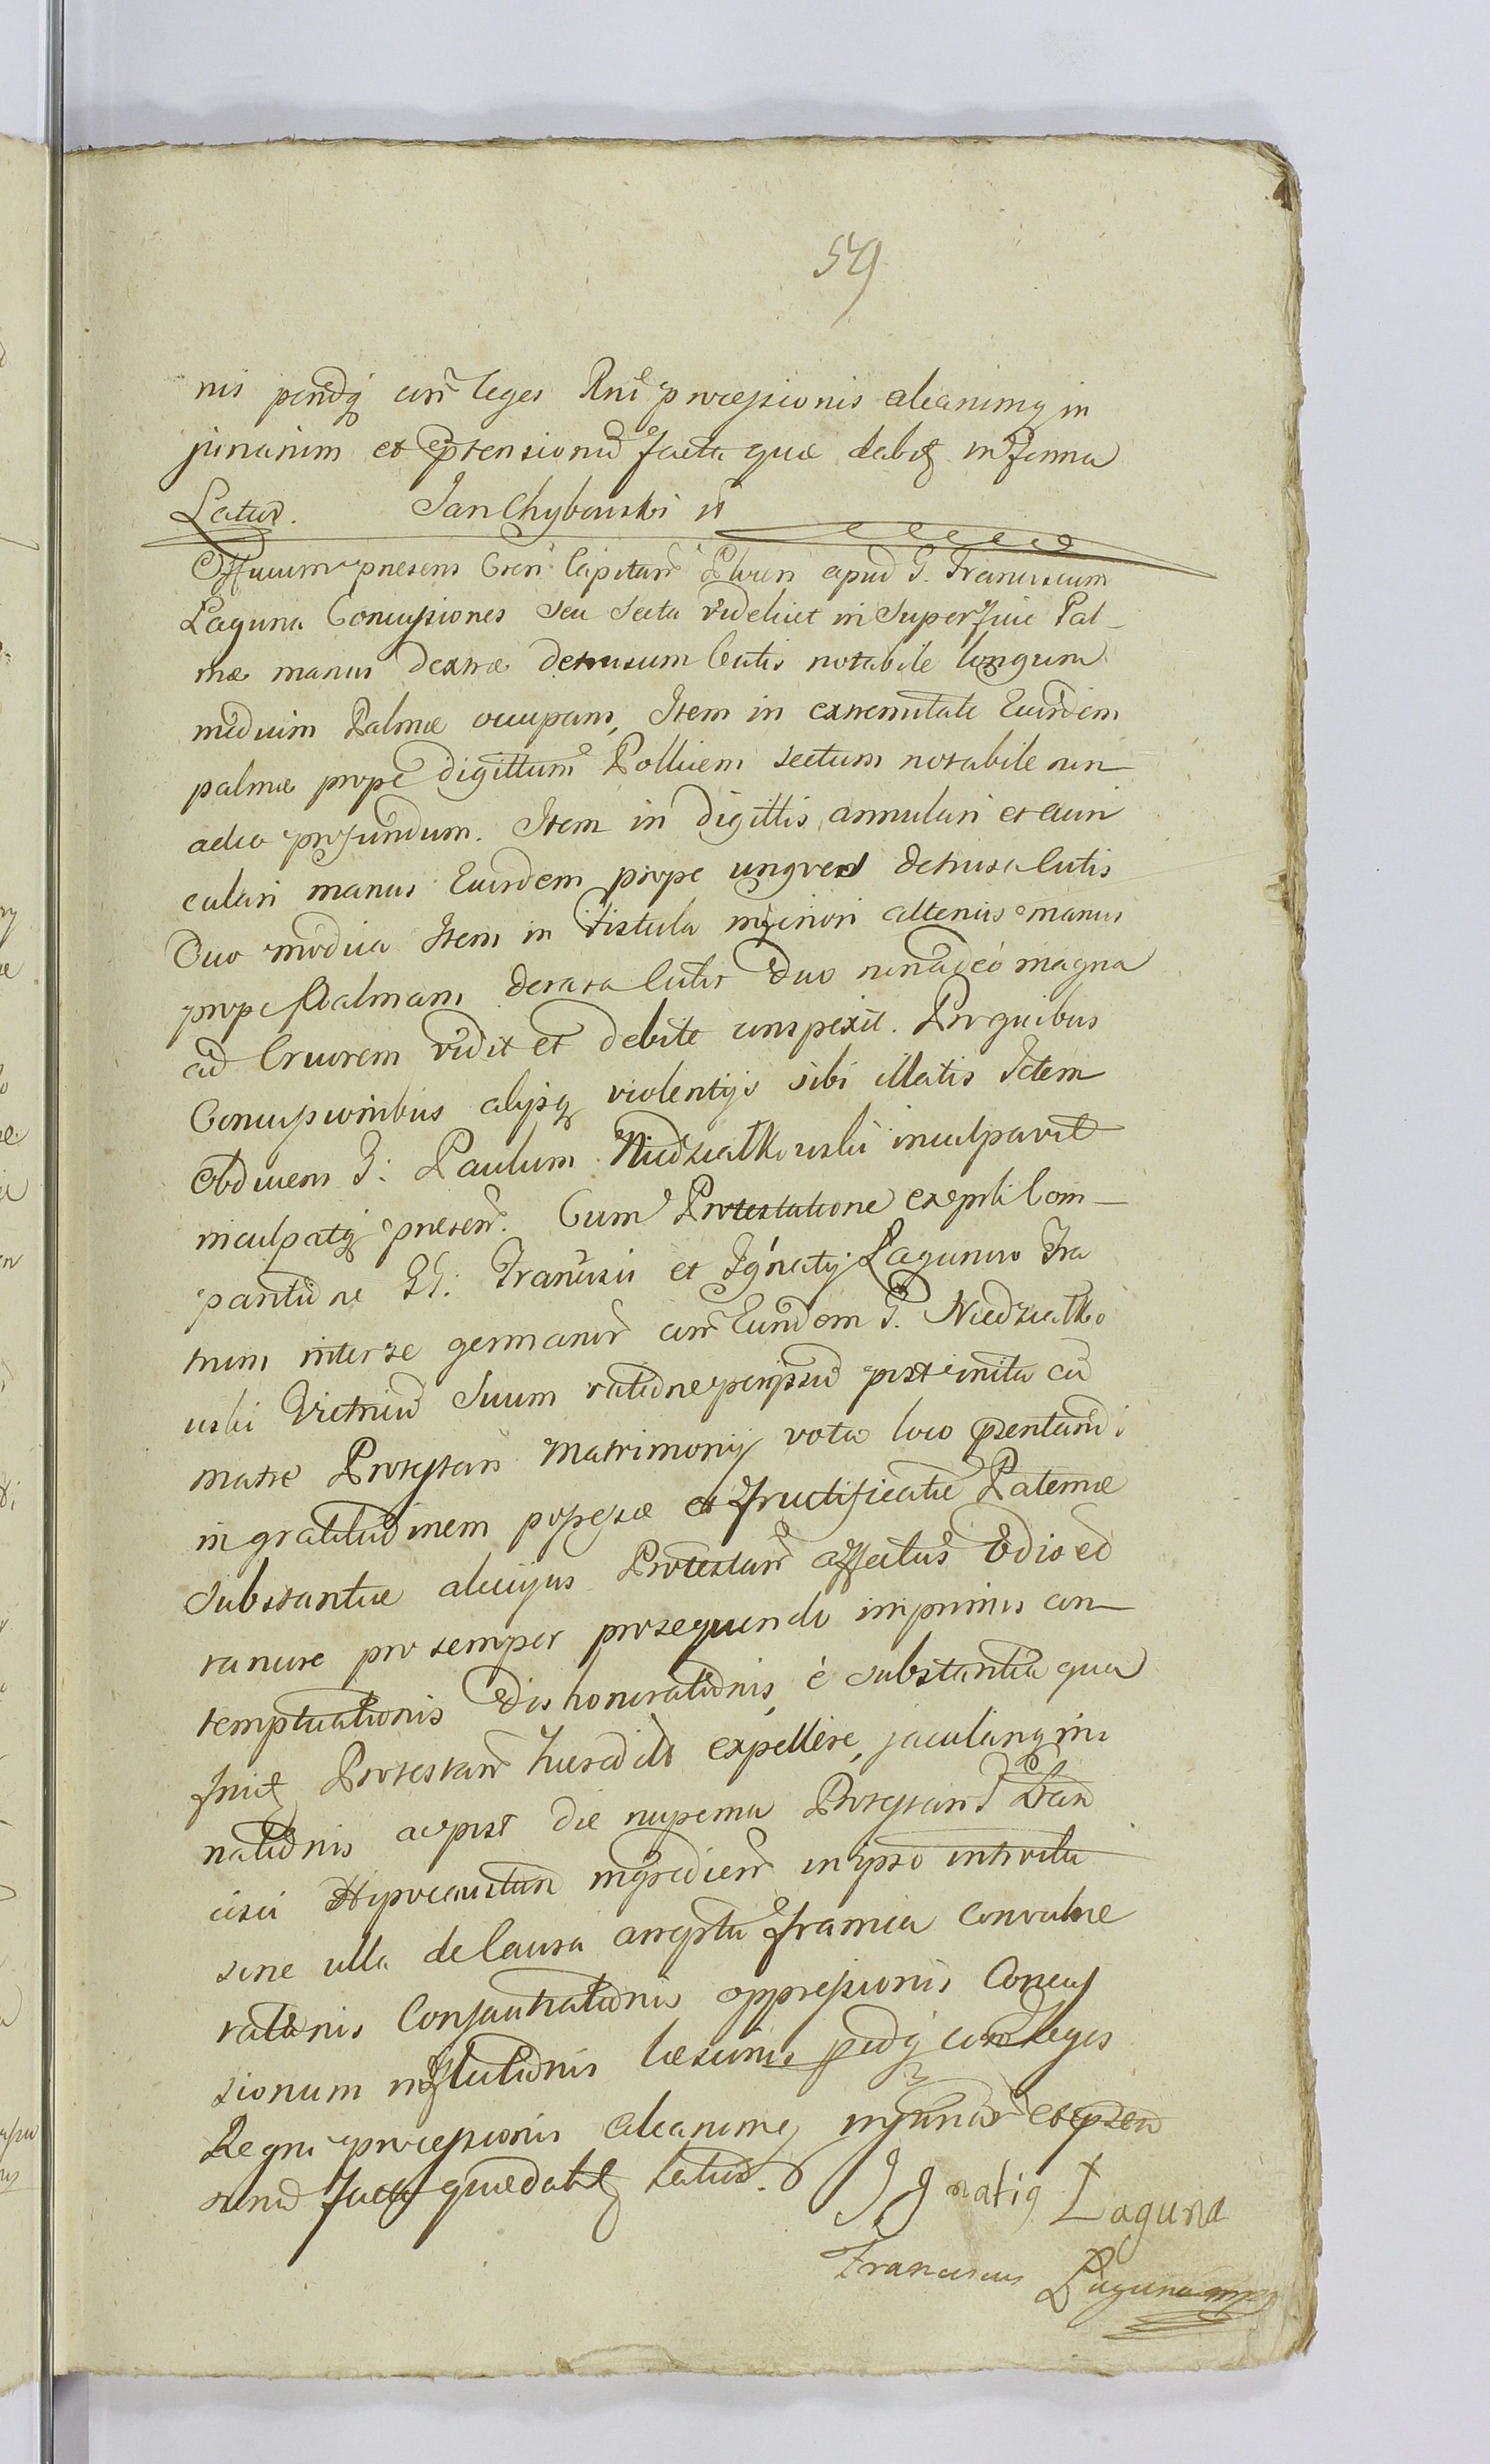 549
nis pendq con leges Rni processionis aleanimq in
juriarum et eptensionu facta quæ debet in forma
Latur. Jan Chybowski
Officium præsens Cren Capitan Plocen apud G. Franciscum
Laguna Concussiones seu Secta videlicet in Superficie Pal-
mæ manus dextræ detrusum Cutis notabile longum
medium Palmæ occupans, Item in extremitate Eiusdem
palmæ prope digittum Pollicem sectum notabile non
adeo profundum. Item in digittis annulari et auri
culari manus Eiusdem prope ungves detrusa Cutis
Duo modica Item in Fistula minori alterius manus
prope Palmam derasa Cutis Duo non adeò magna
ad Cruorem vidit et debite conspexit. Pro quibus
Concussionibus alijsq violentijs sibi illatis Idem
Obducens G: Paulum Niedziałkowski inculpavit
inculpatq præsen. Cum Protestatione exprsti Com-
paritione GG: Francisci et Ignatij Lagunow Fra
trum inter se germanor con Eundem G. Niedziałko
wski Vitricum Suum ratione per ipsum post inita cu
matre Protestan Matrimonij vota loco præsentandi
ingratitudinem possessæ et fructificatæ Paternæ
Substantiæ alicujus Protestan affectus Odio ed
rancore pro semper prosequendo imprimis con-
temptuationis dishonorationis, è substantia qua
fruit Protestan hæredit expellere, jaculanq mi
nationis ac post die nuperna Protestan G Fran
cisci Hypocaustum ingredien in ipso introitu
sine ulla de Causa arrepta framea convulne
rationis Consauciationis oppressionis Concus
sionum læsionis pendq con Leges
Regni processionis aleanimq injuriar et epten
sionu facta quæ debet Latur. Ignatiq Laguna
Franciscus Laguna mp